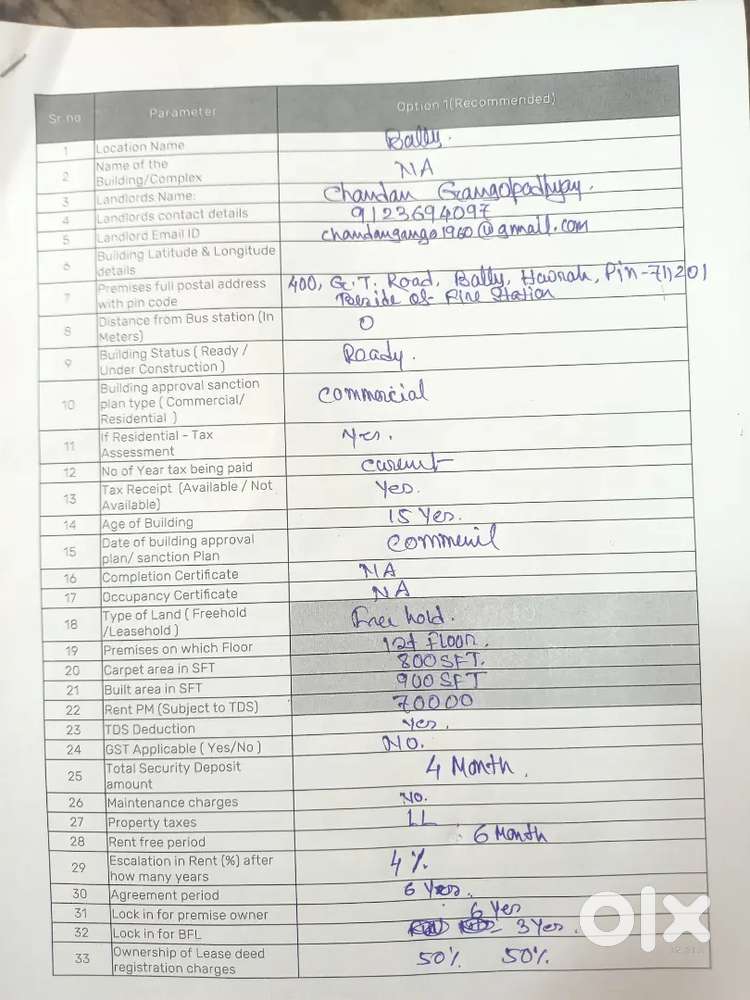 Sr.no Parameter Option 1(Recommended)
1 Location Name Bally.
2 Name of the Building/Complex NA
3 Landlords Name: Chandan Gangopadhyay.
4 Landlords contact details 9123694097
5 Landlord Email ID chandanganga1960@gmail.com
6 Building Latitude & Longitude details
7 Premises full postal address with pin code 400, G.T. Road, Bally, Howrah, Pin-711201
Beside of Fire Station
8 Distance from Bus station (In Meters) 0
9 Building Status ( Ready / Under Construction ) Ready.
10 Building approval sanction plan type ( Commercial/ Residential ) Commercial
11 If Residential - Tax Assessment Yes.
12 No of Year tax being paid
13 Tax Receipt (Available / Not Available) Yes.
14 Age of Building 15 Yes.
15 Date of building approval plan/ sanction Plan
16 Completion Certificate NA
17 Occupancy Certificate NA
18 Type of Land ( Freehold /Leasehold ) Free hold.
19 Premises on which Floor 1st Floor.
20 Carpet area in SFT 800 SFT.
21 Built area in SFT 900 SFT
22 Rent PM (Subject to TDS) 70000
23 TDS Deduction Yes.
24 GST Applicable ( Yes/No ) No.
25 Total Security Deposit amount 4 Month.
26 Maintenance charges No.
27 Property taxes LL
28 Rent free period 6 Month
29 Escalation in Rent (%) after how many years 4%
30 Agreement period 6 Yes.
31 Lock in for premise owner 6 Yes
32 Lock in for BFL 3 Yes.
33 Ownership of Lease deed registration charges 50% 50%
olx